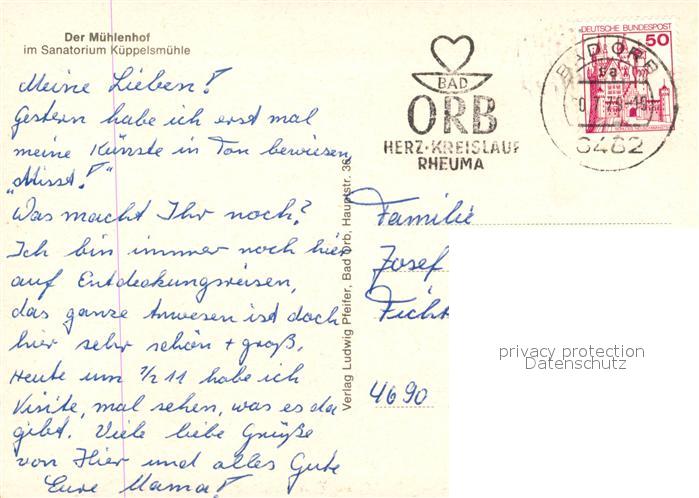 Der Mühlenhof
im Sanatorium Küppelsmühle
Meine Lieben!
Gestern habe ich erst mal
meine Künste in Ton bewiesen,
„Misst!"
Was macht Ihr noch?
Ich bin immer noch hier
auf Entdeckungsreisen,
das ganze Anwesen ist doch
hier sehr schön + groß.
Heute um 1/2 11 habe ich
Visite, mal sehen, was es da
gibt. Viele liebe Grüße
von Hier und alles Gute
Eure Mama!
Verlag Ludwig Pfeifer, Bad Orb, Hauptstr. 36
BAD
ORB
HERZ·KREISLAUF
RHEUMA
DEUTSCHE BUNDESPOST
50
BAD ORB
6482
Familie
Josef
Ficht
4690
privacy protection
Datenschutz